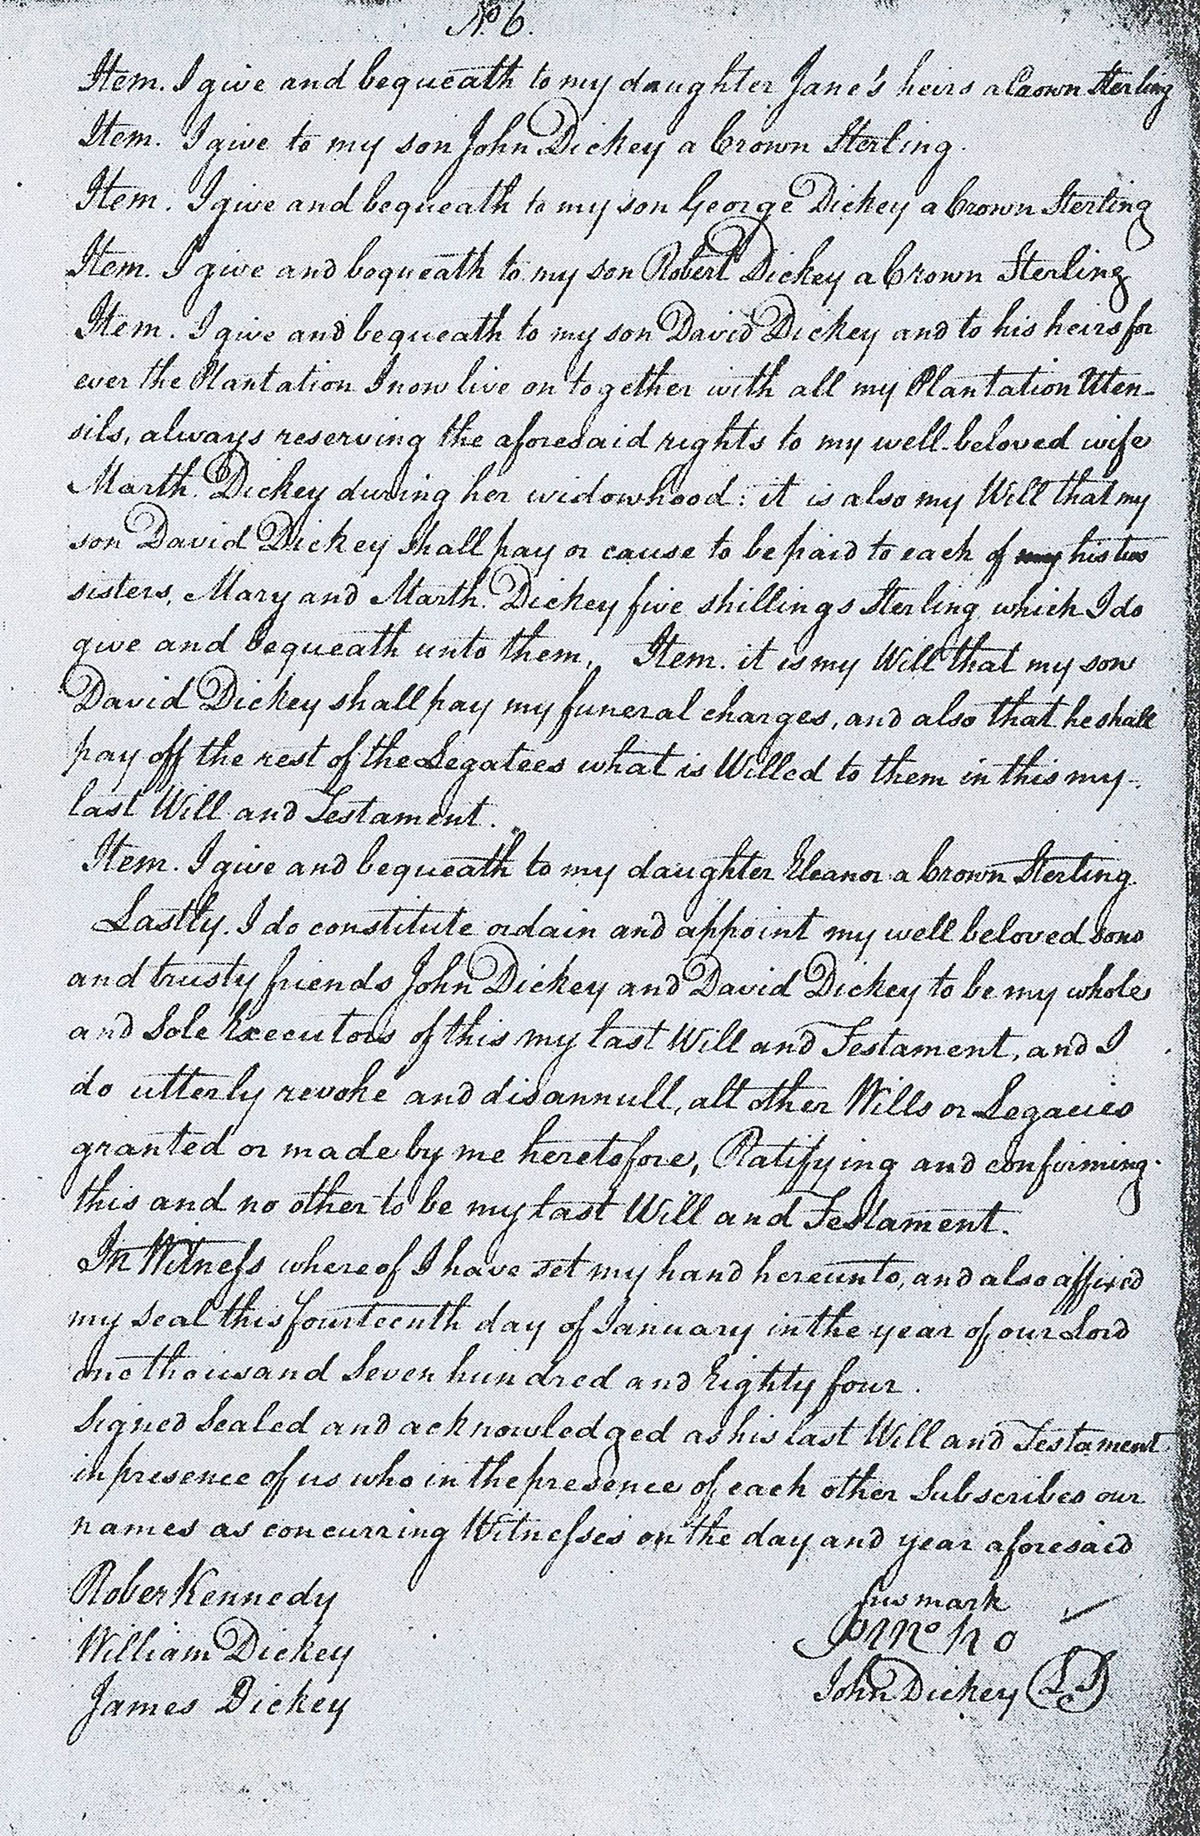 No. 6.
Item. I give and bequeath to my daughter Jane's heirs a Crown Sterling
Item. I give to my son John Dickey a Crown Sterling.
Item. I give and bequeath to my son George Dickey a Crown Sterling
Item. I give and boqueath to my son Robert Dickey a Crown Sterling
Item. I give and bequeath to my son David Dickey and to his heirs for
ever the Plantation I now live on together with all my Plantation Uten-
sils, always reserving the aforesaid rights to my well-beloved wife
Marth. Dickey during her widowhood: it is also my Will that my
son David Dickey shall pay or cause to be paid to each of my his two
sisters, Mary and Marth. Dickey five shillings Sterling which I do
give and bequeath unto them. Item. it is my Will that my son
David Dickey shall pay my funeral charges, and also that he shall
pay off the rest of the Legatees what is Willed to them in this my
last Will and Testament.
Item. I give and bequeath to my daughter Eleanor a Crown Sterling.
Lastly. I do constitute ordain and appoint my well beloved sons
and trusty friends John Dickey and David Dickey to be my whole
and Sole Executors of this my last Will and Testament, and I
do utterly revoke and disannull, all other Wills or Legacies
granted or made by me heretofore, Ratifying and confirming
this and no other to be my last Will and Testament.
In Witness whereof I have set my hand hereunto, and also affixed
my seal this fourteenth day of January in the year of our Lord
one thousand Seven hundred and Eighty four.
Signed Sealed and acknowledged as his last Will and Testament
in presence of us who in the presence of each other Subscribes our
names as concurring Witnesses on the day and year aforesaid
Rober Kennedy
his mark
William Dickey
James Dickey
John Dickey